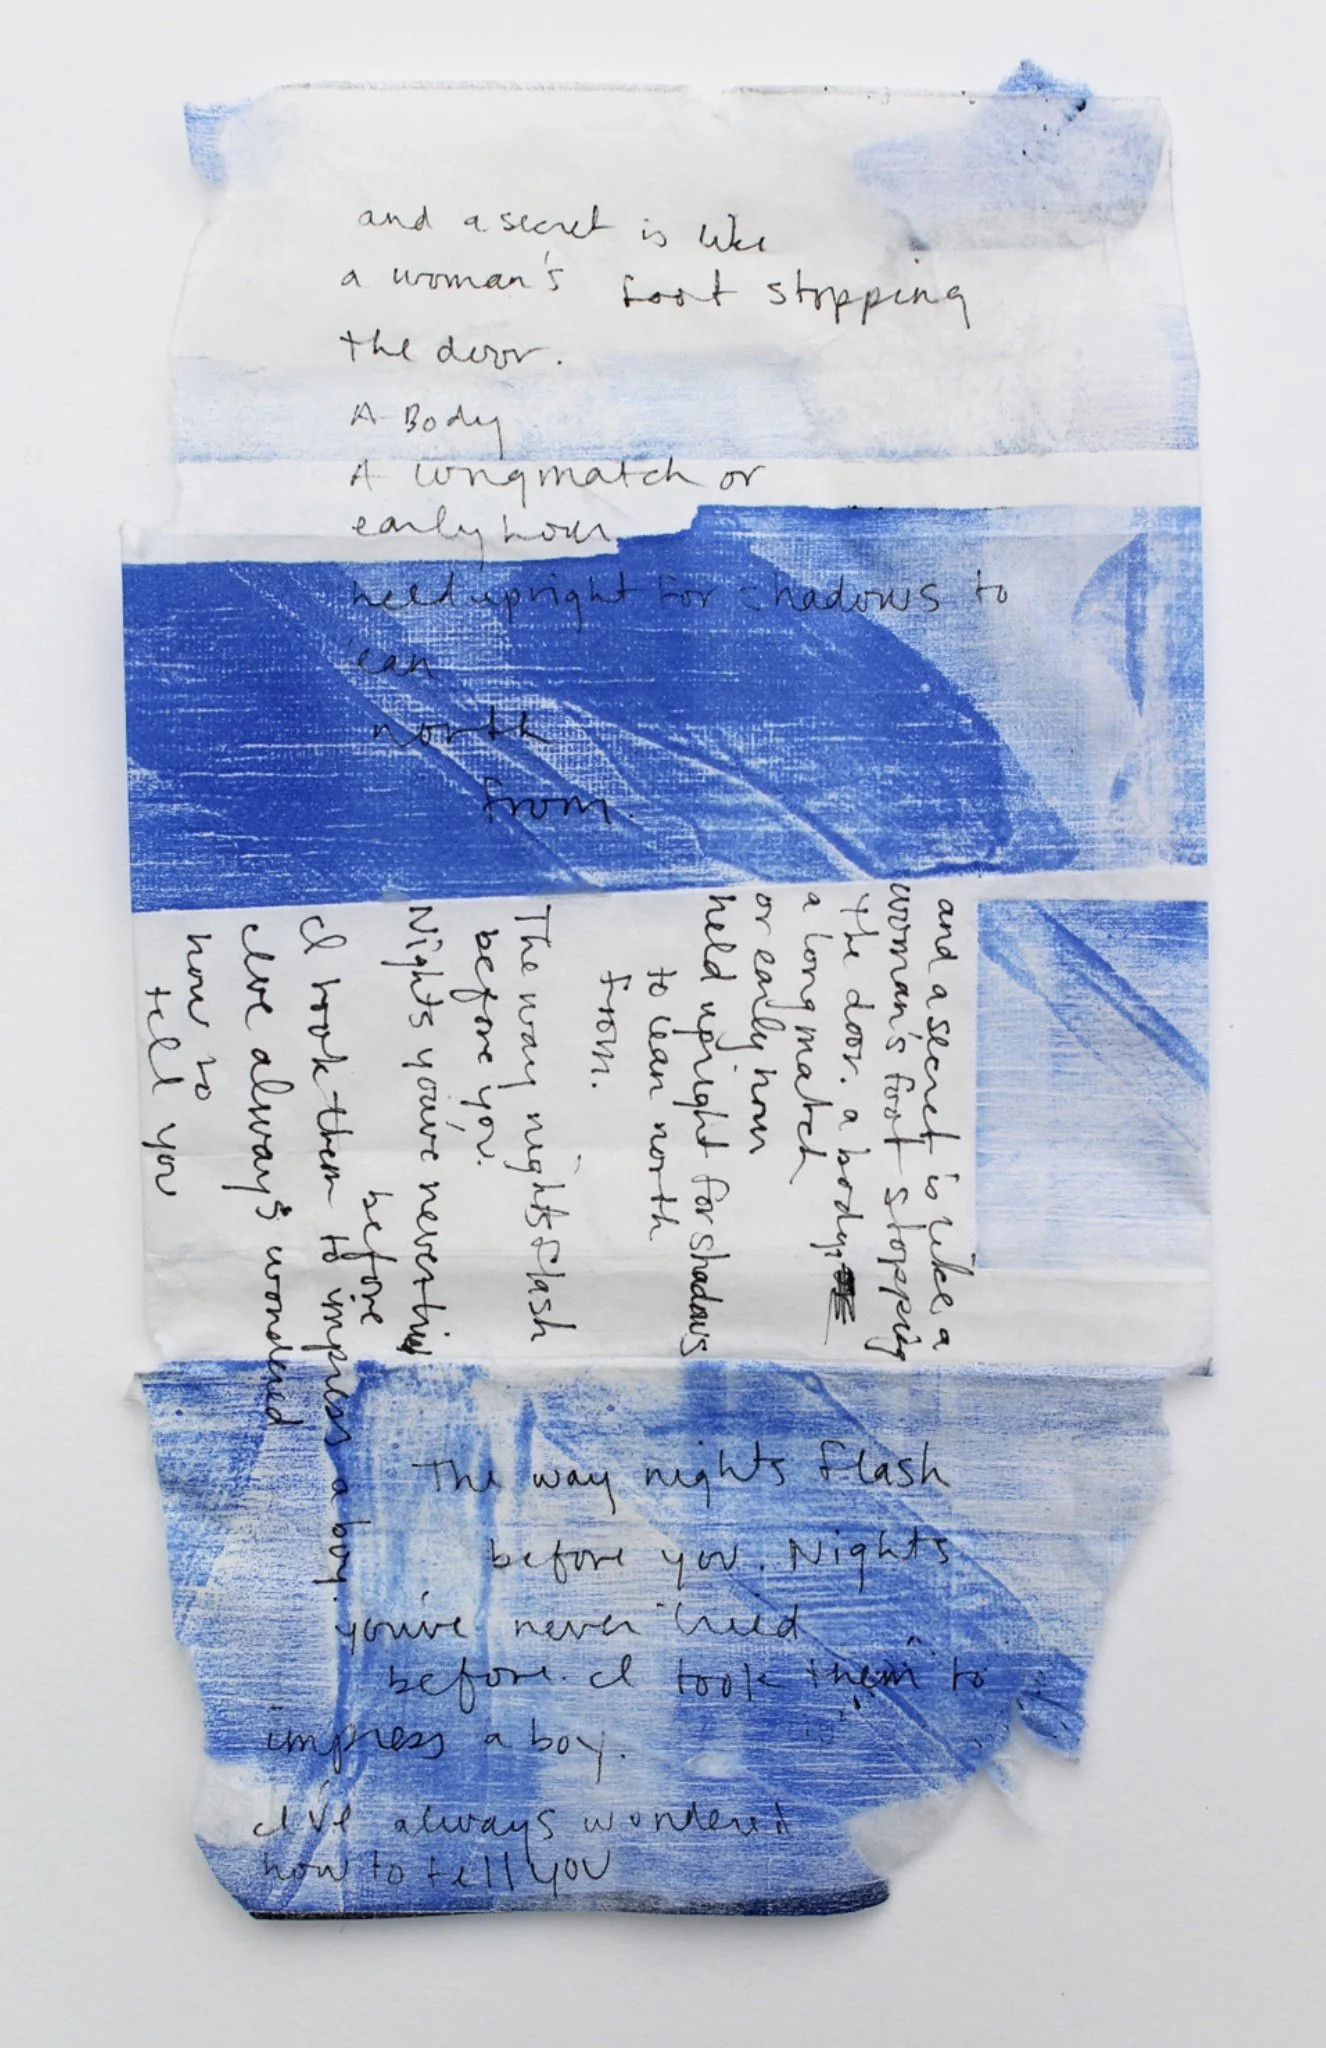 and a secret is like
a woman's foot stopping
the door.
A Body
A longmatch or
early hour
held upright for shadows to
lean
north
from.
and a secret is like, a
woman's foot stopping
the door. a body,
a longmatch
or early hour
held upright for shadows
to lean north
from.
The way nights flash
before you.
Nights you've never
before
I took them to impress a boy.
I've always wondered
how to
tell you
The way nights flash
before you. Nights
you've never lived
before. I took them to
impress a boy.
I've always wondered
how to tell you